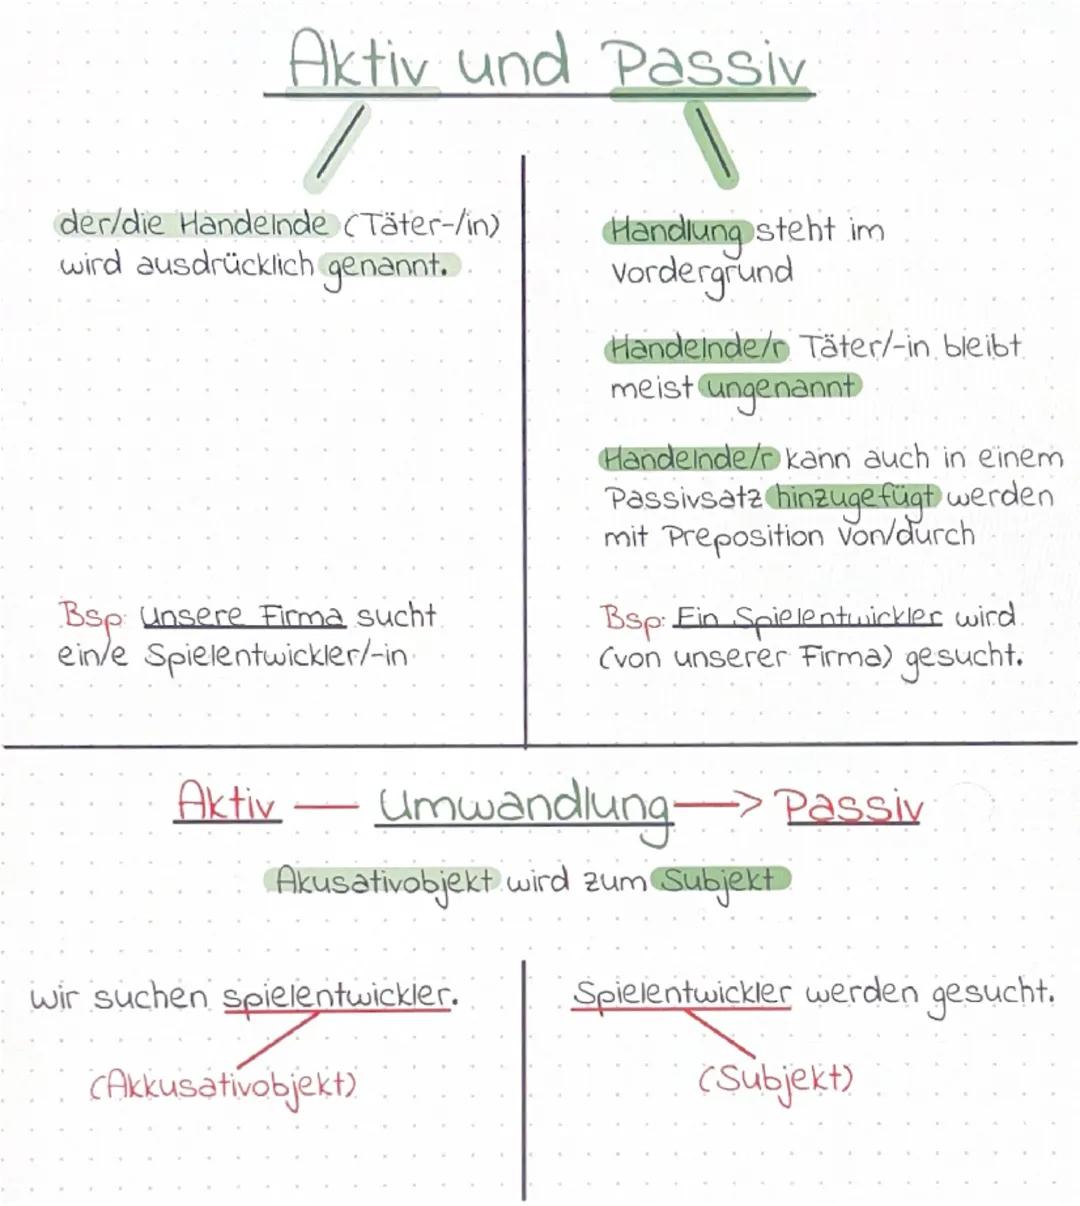 Aktiv und Passiv
der/die Handelnde (Täter-/in)
wird ausdrücklich genannt.
Handlung steht im
Vordergrund
Handelnde/r Täter/-in bleibt
meist ungenannt
Handelnde/r kann auch in einem
Passivsatz hinzugefügt werden
mit Preposition von/durch
Bsp: Unsere Firma sucht
ein/e Spielentwickler/-in
Bsp: Ein Spielentwickler wird
(von unserer Firma) gesucht.
Aktiv — Umwandlung —> Passiv
Akusativobjekt wird zum Subjekt
wir suchen spielentwickler.
(Akkusativobjekt)
Spielentwickler werden gesucht.
(Subjekt)